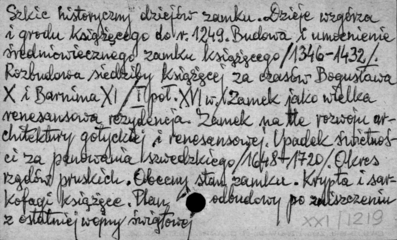 Szkic historyczny dziejów zamku. Dzieje wzgórza
i grodu książęcego do r. 1249. Budowa i umocnienie
średniowiecznego zamku książęcego /1346-1432/
Rozbudowa siedziby książęcej za czasów Bogusława
X i Barnima XI /I poł. XVI w./ Zamek jako wielka
renesansowa rezydencja. Zamek na tle rozwoju ar-
chitektury gotyckiej i renesansowej. Upadek świetnoś-
ci za panowania szwedzkiego /1648-1720/. Okres
rządów pruskich. Obecny stan zamku. Krypta i sar-
kofagi książęce. Plany odbudowy po zniszczeniu
z ostatniej wojny światowej
XXI/1219